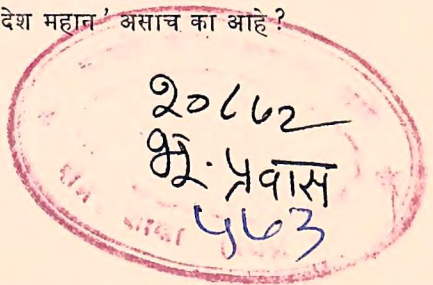 देश महान' असाच का आहे ?
२०८५२
भू. प्रवास
५६३